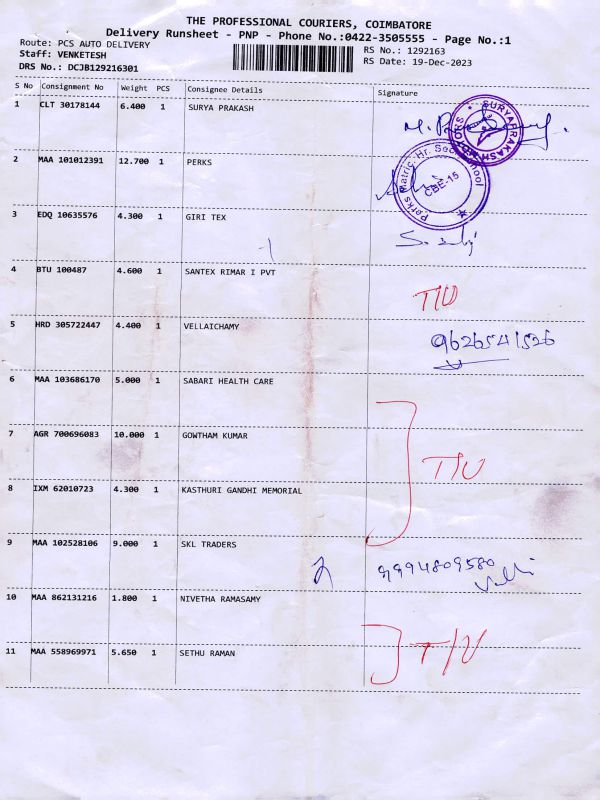 THE PROFESSIONAL COURIERS, COIMBATORE
Delivery Runsheet - PNP - Phone No.:0422-3505555 - Page No.:1
Route: PCS AUTO DELIVERY
RS No.: 1292163
Staff: VENKETESH
RS Date: 19-Dec-2023
DRS No.: DCJB129216301
S No Consignment No Weight PCS Consignee Details Signature
1 CLT 30178144 6.400 1 SURYA PRAKASH
SURYAPRAKASH MOTORS
2 MAA 101012391 12.700 1 PERKS
Perks Matric Hr. Sec. School
CBE-15
3 EDQ 10635576 4.300 1 GIRI TEX
4 BTU 100487 4.600 1 SANTEX RIMAR I PVT
T/U
5 HRD 305722447 4.400 1 VELLAICHAMY
9626541526
6 MAA 103686170 5.000 1 SABARI HEALTH CARE
7 AGR 700696083 10.000 1 GOWTHAM KUMAR
T/U
8 IXM 62010723 4.300 1 KASTHURI GANDHI MEMORIAL
9 MAA 102528106 9.000 1 SKL TRADERS
9994809580
10 MAA 862131216 1.800 1 NIVETHA RAMASAMY
T/U
11 MAA 558969971 5.650 1 SETHU RAMAN